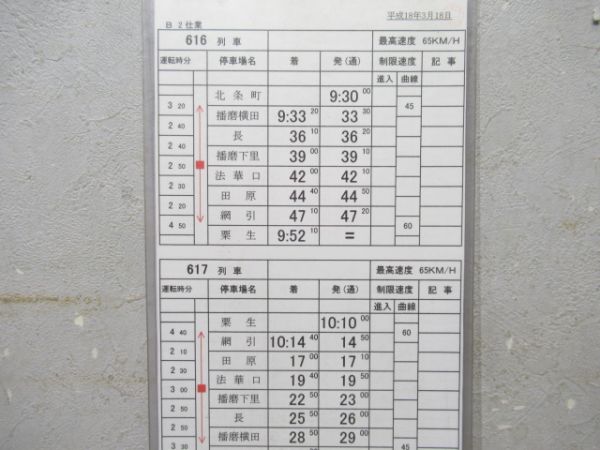 平成18年3月18日
B 2仕業
616 列車 最高速度 65KM/H
運転時分 停車場名 着 発(通) 制限速度 記事
進入 曲線
北条町 9:30 00
3 20 45
播磨横田 9:33 20 33 30
2 40
長 36 10 36 20
2 40
播磨下里 39 00 39 10
2 50
法華口 42 00 42 10
2 30
田原 44 40 44 50
2 20
網引 47 10 47 20
4 50 60
粟生 9:52 10 =
617 列車 最高速度 65KM/H
運転時分 停車場名 着 発(通) 制限速度 記事
進入 曲線
粟生 10:10 00
4 40 60
網引 10:14 40 14 50
2 10
田原 17 00 17 10
2 30
法華口 19 40 19 50
3 00
播磨下里 22 50 23 00
2 50
長 25 50 26 00
2 50
播磨横田 28 50 29 00
3 30 45